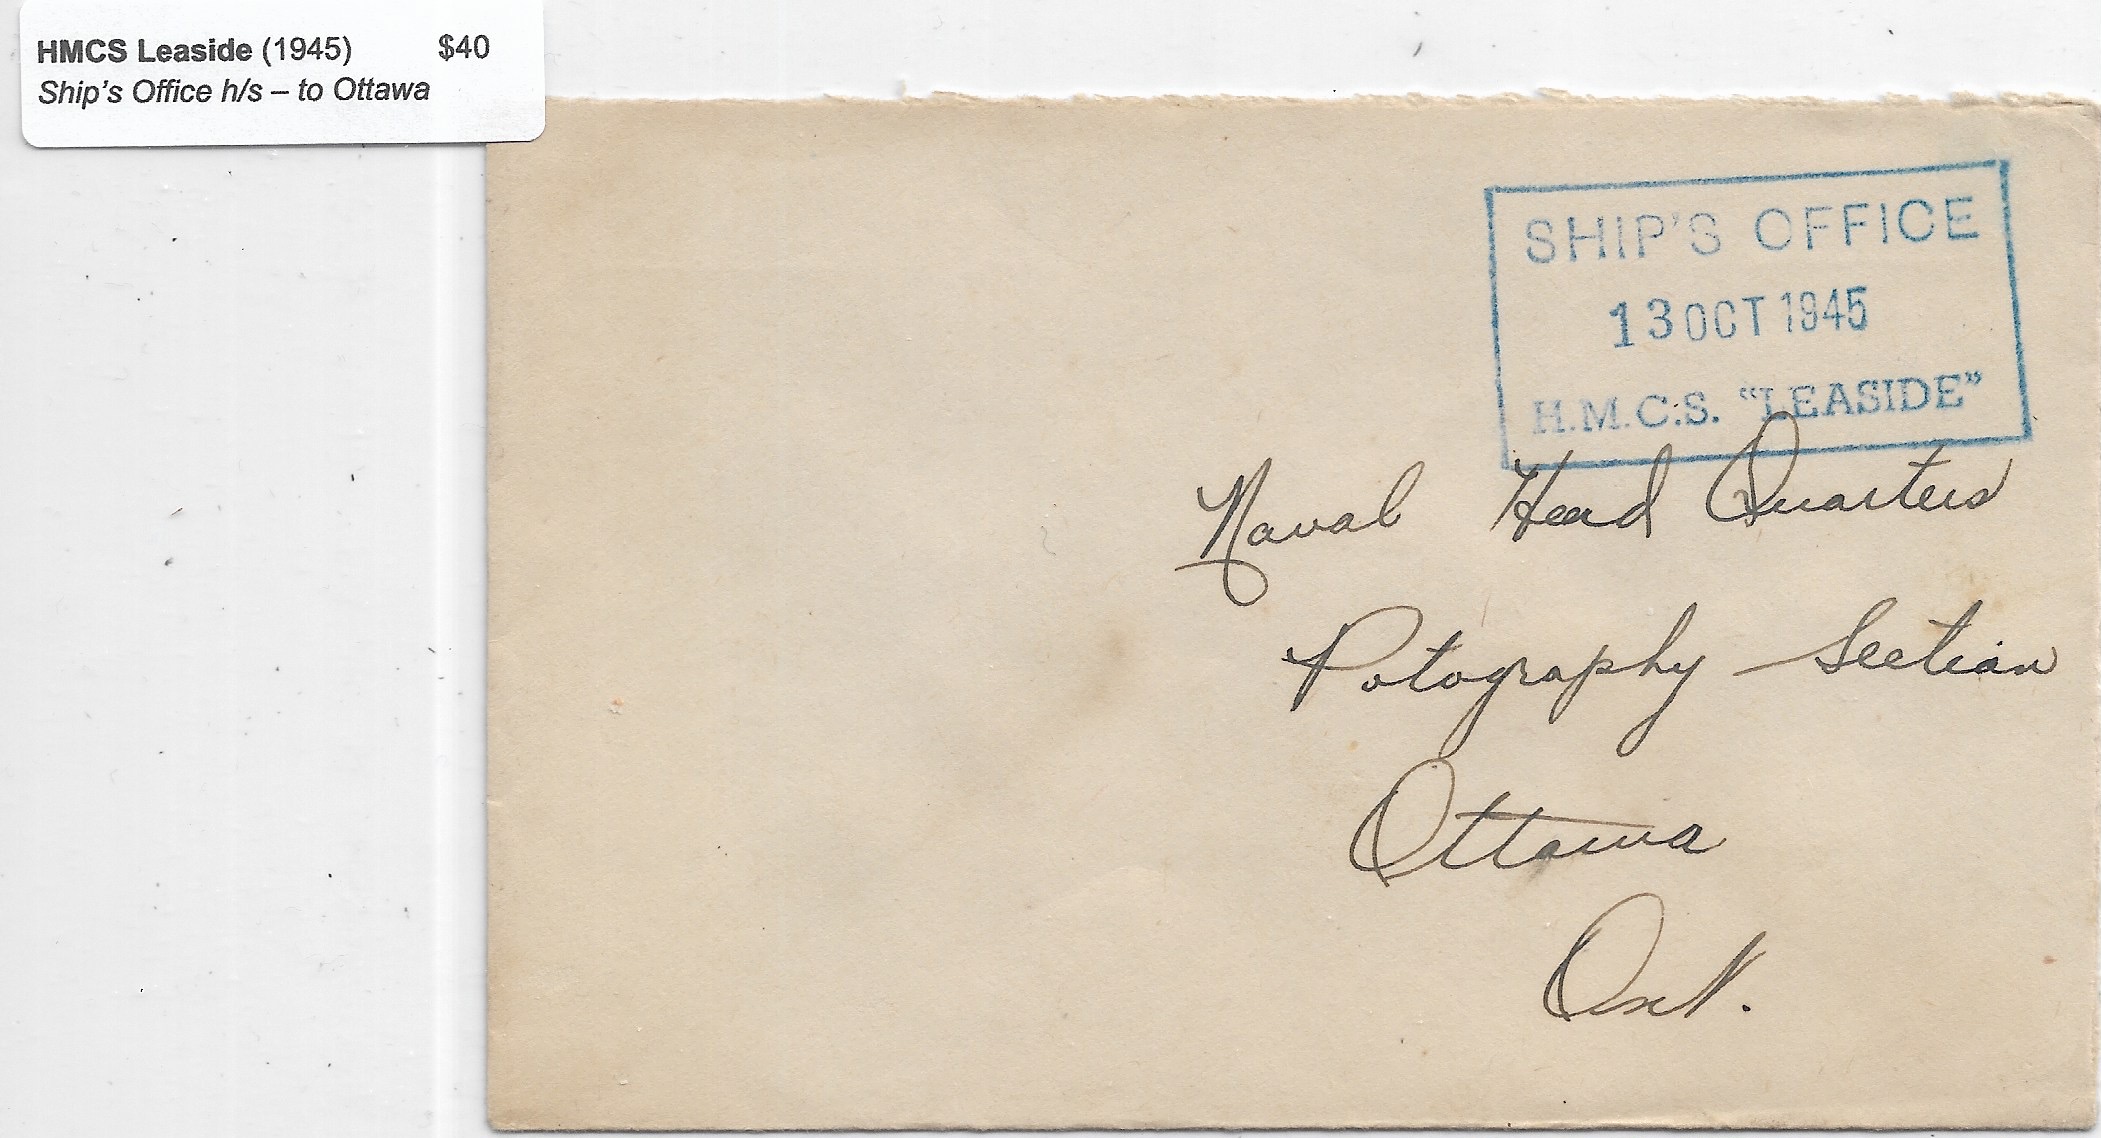 HMCS Leaside (1945) $40
Ship's Office h/s – to Ottawa
SHIP'S OFFICE
13 OCT 1945
H.M.C.S. "LEASIDE"
Naval Head Quarters
Potography Section
Ottawa
Ont.